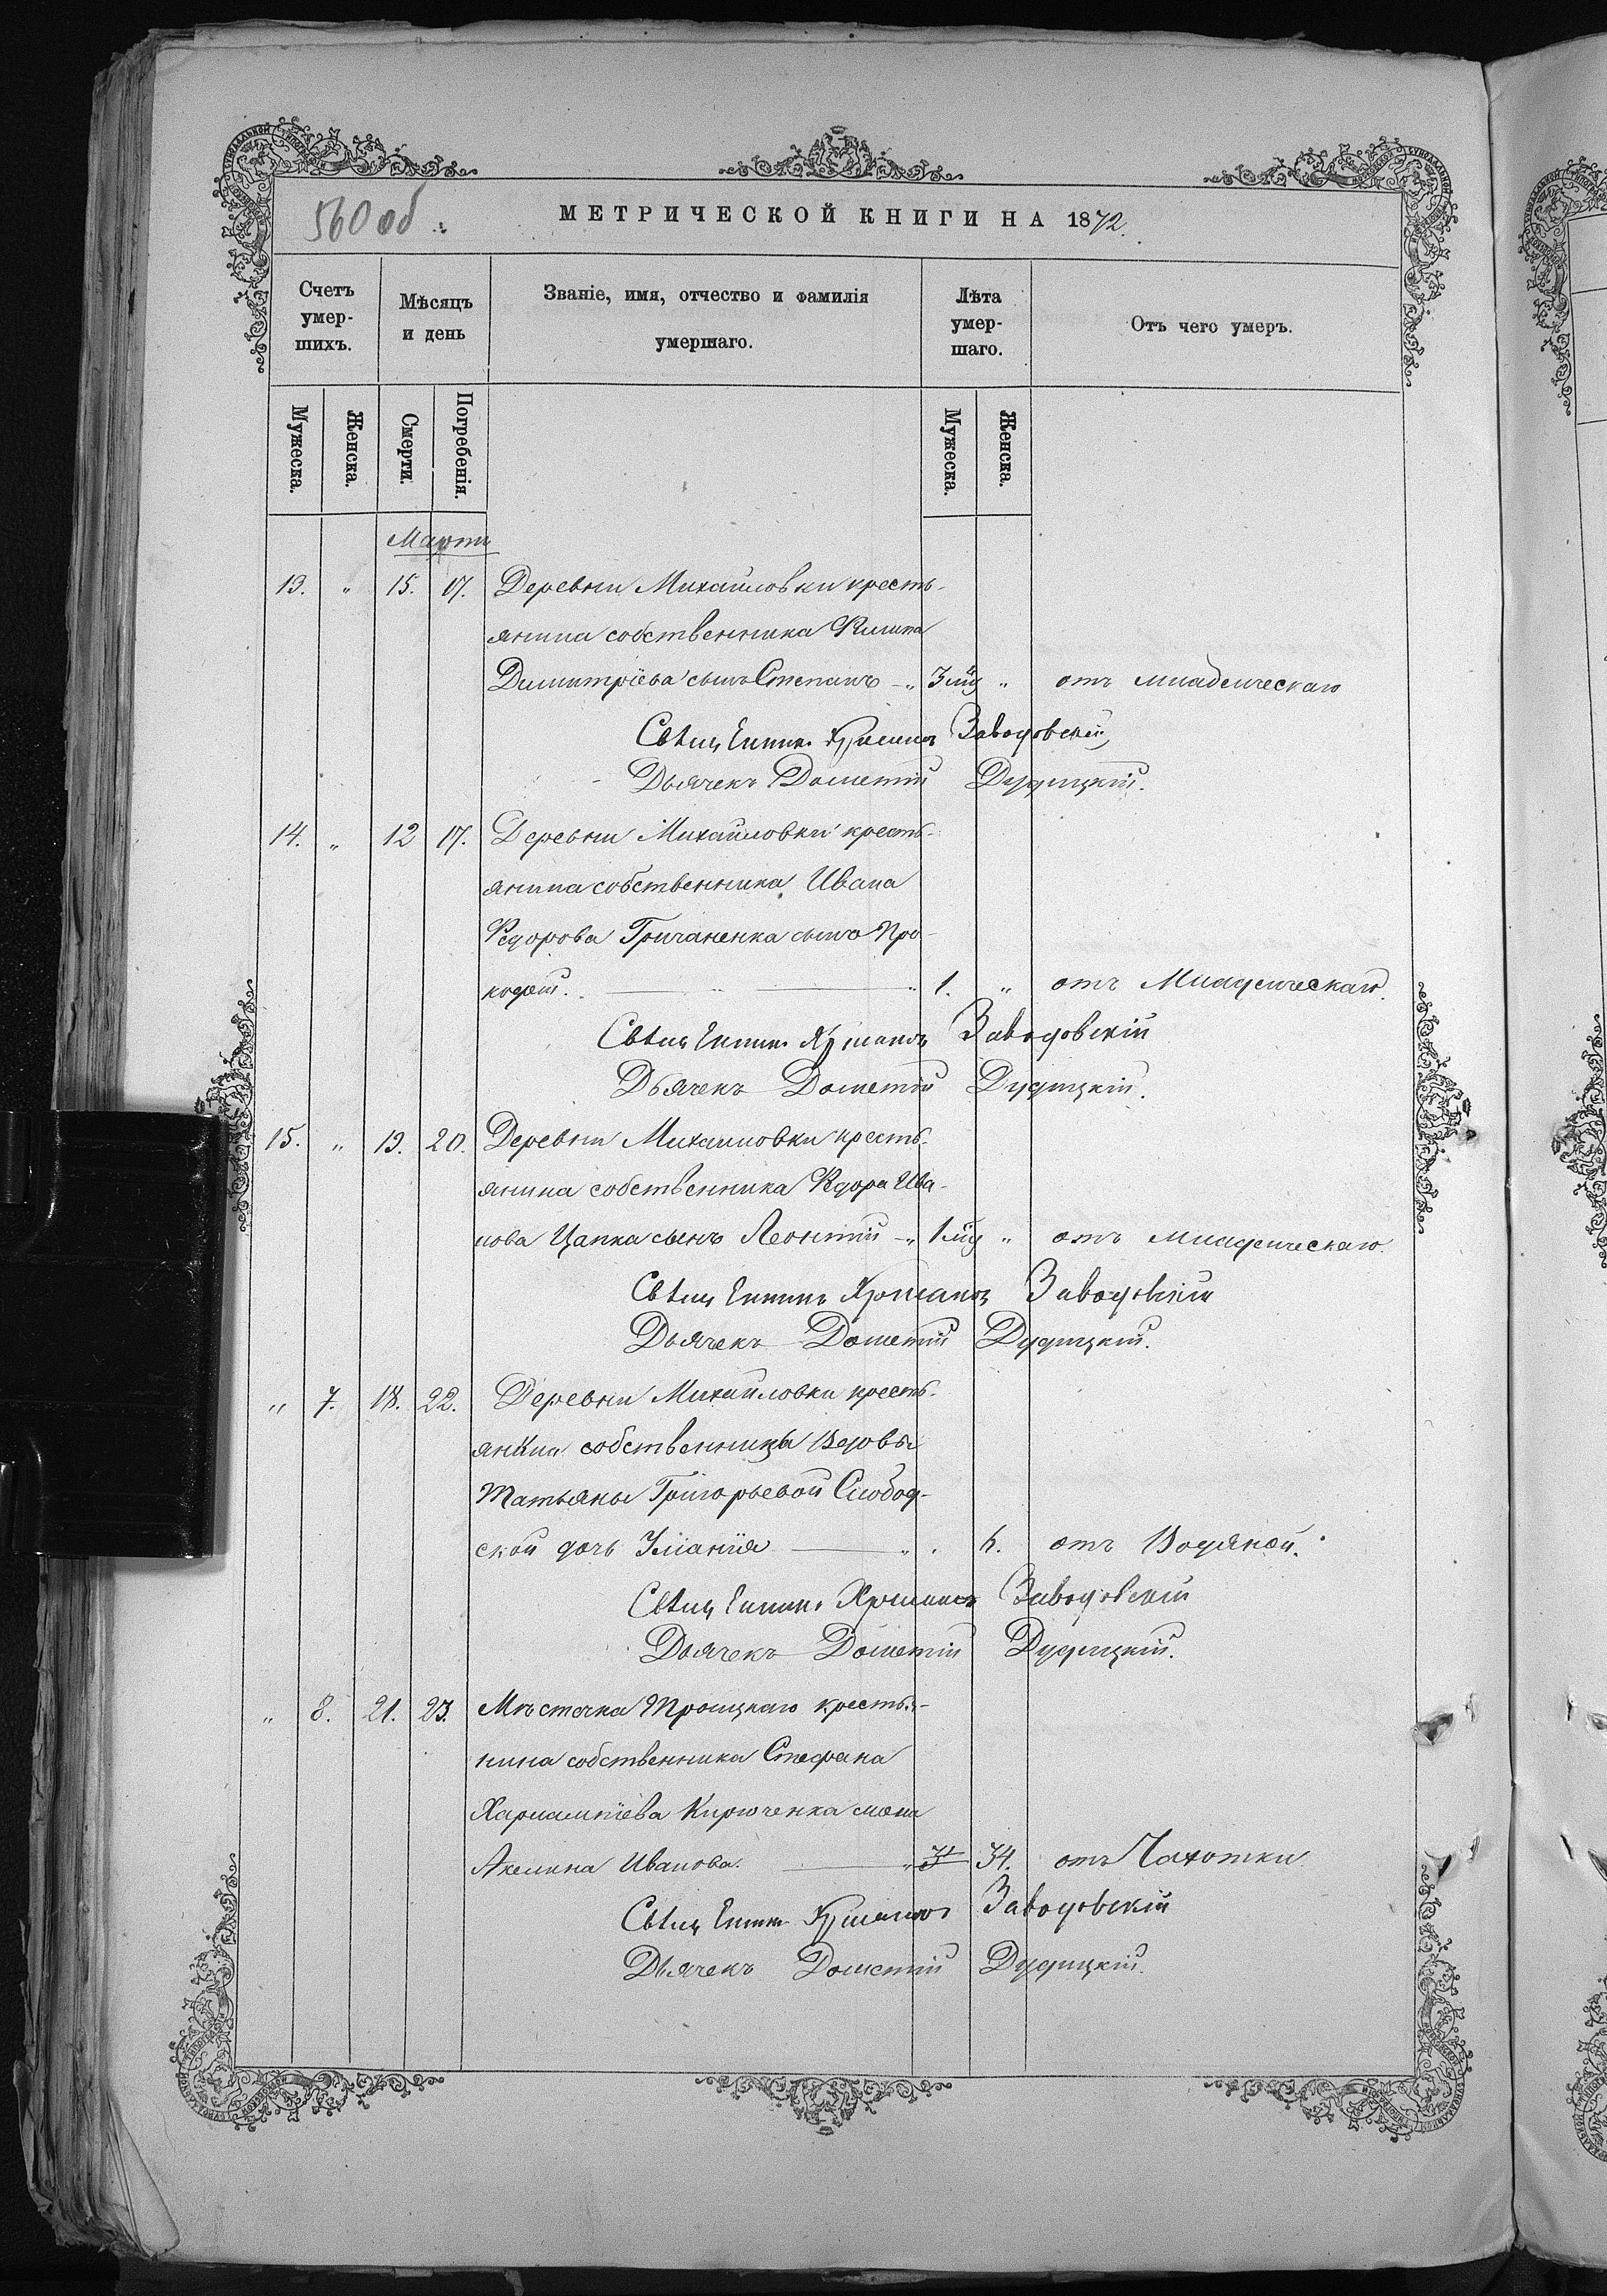 560 об.
МЕТРИЧЕСКОЙ КНИГИ НА 1872.
Счетъ умер-шихъ.
Мѣсяцъ и день
Званіе, имя, отчество и фамилія умершаго.
Лѣта умер-шаго.
Отъ чего умеръ.
Мужеска.
Женска.
Смерти.
Погребенія.
Мужеска.
Женска.
Мартъ
13. " 15. 17. Деревни Михайловки кресть-
янина собственника
Димитріева сынъ Степанъ " 3 " отъ младенческаго
Свящ Заводовскій
Дьячекъ Дометій Дудицкій.
14. " 12 17. Деревни Михайловки кресть-
янина собственника Ивана
Федорова Гричаненка сынъ Про-
кофій. " 1. " отъ Младенческаго.
Свящ Заводовскій
Дьячекъ Дометій Дудицкій.
15. " 19. 20. Деревни Михайловки кресть-
янина собственника Ива-
нова Цапка сынъ Леонтій " 1 " отъ младенческаго.
Свящ Заводовскій
Дьячекъ Дометій Дудицкій.
" 7. 18. 22. Деревни Михайловки кресть-
собственницы Вдовы
Татьяны Григорьевой Слобод-
ской дочь Уліанія " отъ Водяной.
Свящ Заводовскій
Дьячекъ Дометій Дудицкій.
" 8. 21. 23. Мѣстечка Троицкаго кресть-
нина собственника Стефана
Харлампіева Кирюченка жена
Акелина Иванова. " 34. отъ Чахотки
Свящ Заводовскій
Дьячекъ Дометій Дудицкій.